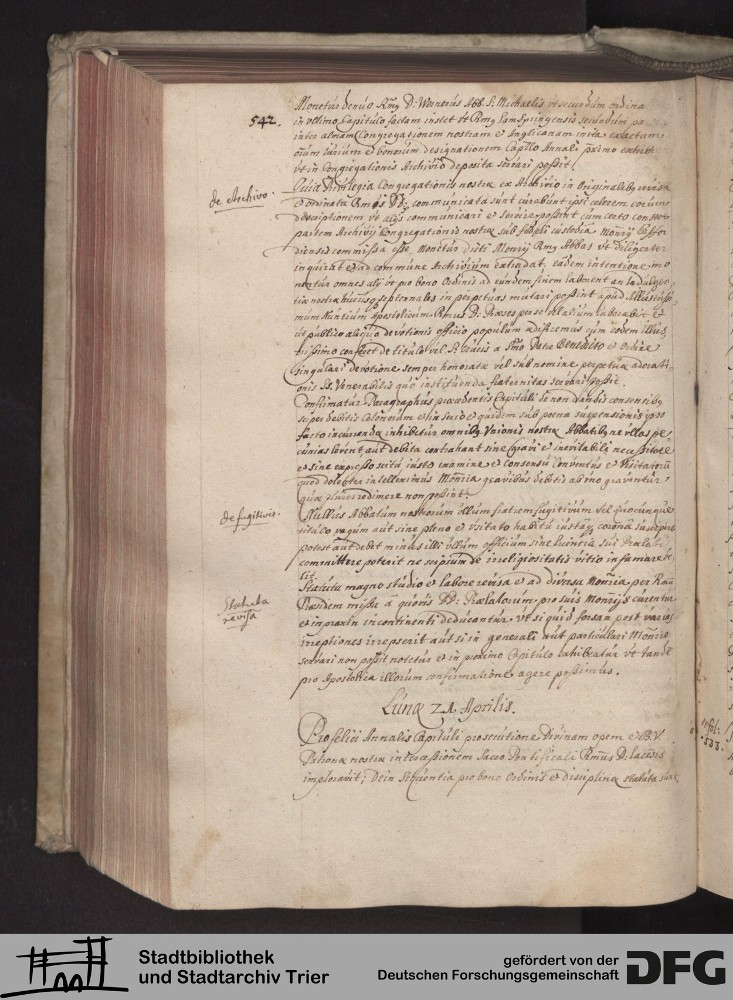 542.
Monetur denuo Rmus D: Wernerus Abb. S. Michaelis ut secundum ordina
in ultimo Capitulo factam instet ut Rmus Lamspringensis secundum pa
inter almam Congregationem nostram et Anglicanam inita exactam
omium iurium et bonorum designationem Captlo Annali primo exhib
ut in Congregationis Archivio deposita servari possit.
de Archivo.
Quia Privilegia Congregationis nostræ ex Archivio in Originalibus revisa
et ordinata Rmis DD. communicata sunt curabunt ipsi celerem eorum
descriptionem ut aliis communicari et servire possint cum certo constet
partem Archivii Congregationis nostræ sub fideli custodia Monrii
diensis commissa esse. Monetur dicti Monrii Rmus Abbas ut diligenter
inquirat et ad commune Archivium extradat. eadem intentione mo
nentur omnes alii ut pro bono Ordinis ad eundem finem laborent an Indulgen
tiæ nostræ hucusque septennales in perpetuas mutari possint apud Illustrissi
mum Nuntium Apostolicum Rmus D: Præses per se vel alium laborabit et
ut publico aliquo devotionis officio populum ædificemus cum eodem Illus
trissimo conferet de titulo vel S. Crucis a Smo Patre Benedicto et Ordine
singulari devotione semper honoratæ vel sub nomine perpetuæ adorati
onis SS. Venerabilis quo instituenda fraternitas servari possit.
Confirmatur Paragraphus præcedentis Capituli de non dandis consensibus
super debitis Colonorum et insuper et quidem sub poena suspensionis ipso
facto incurrenda inhibetur omnibus Unionis nostræ Abbatibus ne ullas pe
cunias levent aut debita contrahant sine gravi et inevitabili necessitate
et sine expresso scitu iusto examine et consensu Conventus et Visitatorum
quod dolenter intelleximus Monria gravibus debitis alieno gravantur
quæ plures redimere non possint.
de fugitivis.
Nullus Abbatum nostrorum ullum fratrem fugitivum vel quocunque
titulo vagum aut sine pleno et usitato habitu iustaque corona suscipere
potest aut debet minus illi ullum officium sine licentia sui Prælati
committere poterit ne seipsum de irreligiositatis vitio infamare ve
lit.
Statuta revisa
Statuta magno studio et labore revisa et ad diversa Monria per Rmum
Præsidem missa a quovis DD: Prælatorum pro suis Monriis curentur
et in praxin incontinenti deducantur. ut si quid forsan post varias
irreptiones irrepserit aut si in generali aut particulari Monrio
servari non possit notetur et in proximo Capitulo exhibeatur ut tande
pro Apostolica illorum confirmatione agere possimus.
Lunæ 21 Aprilis.
Pro felici Annalis Capituli prosecutione Divinam opem et B.V.
Patronæ nostræ intercessionem Sacro Pontificali Rmus D. Lacensis
imploravit; Dein sequentia pro bono Ordinis et disciplinæ statuta sunt,
533.
Stadtbibliothek
und Stadtarchiv Trier
gefördert von der
Deutschen Forschungsgemeinschaft
DFG